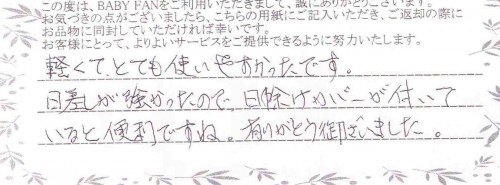 この度は、BABY FANをご利用いただきまして、誠にありがとうございます。
お気づきの点がございましたら、こちらの用紙にご記入いただき、ご返却の際に
お品物に同封していただければ幸いです。
お客様にとって、よりよいサービスをご提供できるように努力いたします。
軽くて、とても使いやすかったです。
日差しが強かったので、日除けカバーが付いて
いると便利ですね。有りがとう御ざいました。